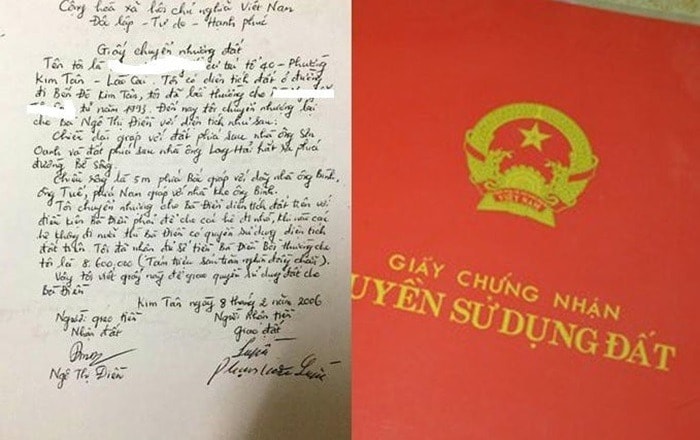 Cộng hoà xã hội chủ nghĩa Việt Nam
Độc lập - Tự do - Hạnh phúc
Giấy chuyển nhường đất
Tên tôi là cư trú tổ 40 - Phường
Kim Tân - Lào Cai. Tôi có diện tích đất ở đường
đi Bến Đá Kim Tân, tôi đã bồi thường cho
từ năm 1993. Đến nay tôi chuyển nhường lại
cho Bà Ngô Thị Điền với diện tích như sau:
Chiều dài giáp với đất phía sau nhà ông Sơn
Oanh và đất phía sau nhà ông Long-Hải hắt ra phía
đường Bê sông.
Chiều rộng là 5m phía Bắc giáp với dãy nhà ông Bình,
ông Tuê, phía Nam giáp với nhà kho ông Bình.
Tôi chuyển nhường cho Bà Điền diện tích đất trên với
điều kiện Bà Điền phải để cho các hộ đi nhờ, khi nào các
hộ không đi nữa thì Bà Điền có quyền sử dụng diện tích
đất trên. Tôi đã nhận đủ số tiền Bà Điền Bồi thường cho
tôi là 8.600.000 (Tám triệu sáu trăm nghìn đồng chẵn).
Vậy tôi viết giấy này để giao quyền sử dụng đất cho
Bà Điền
Kim Tân ngày 8 tháng 2 năm 2006
Người giao tiền Người nhận tiền
Nhận đất Giao đất
Ngô Thị Điền
VIỆT NAM
GIẤY CHỨNG NHẬN
UYỀN SỬ DỤNG ĐẤT